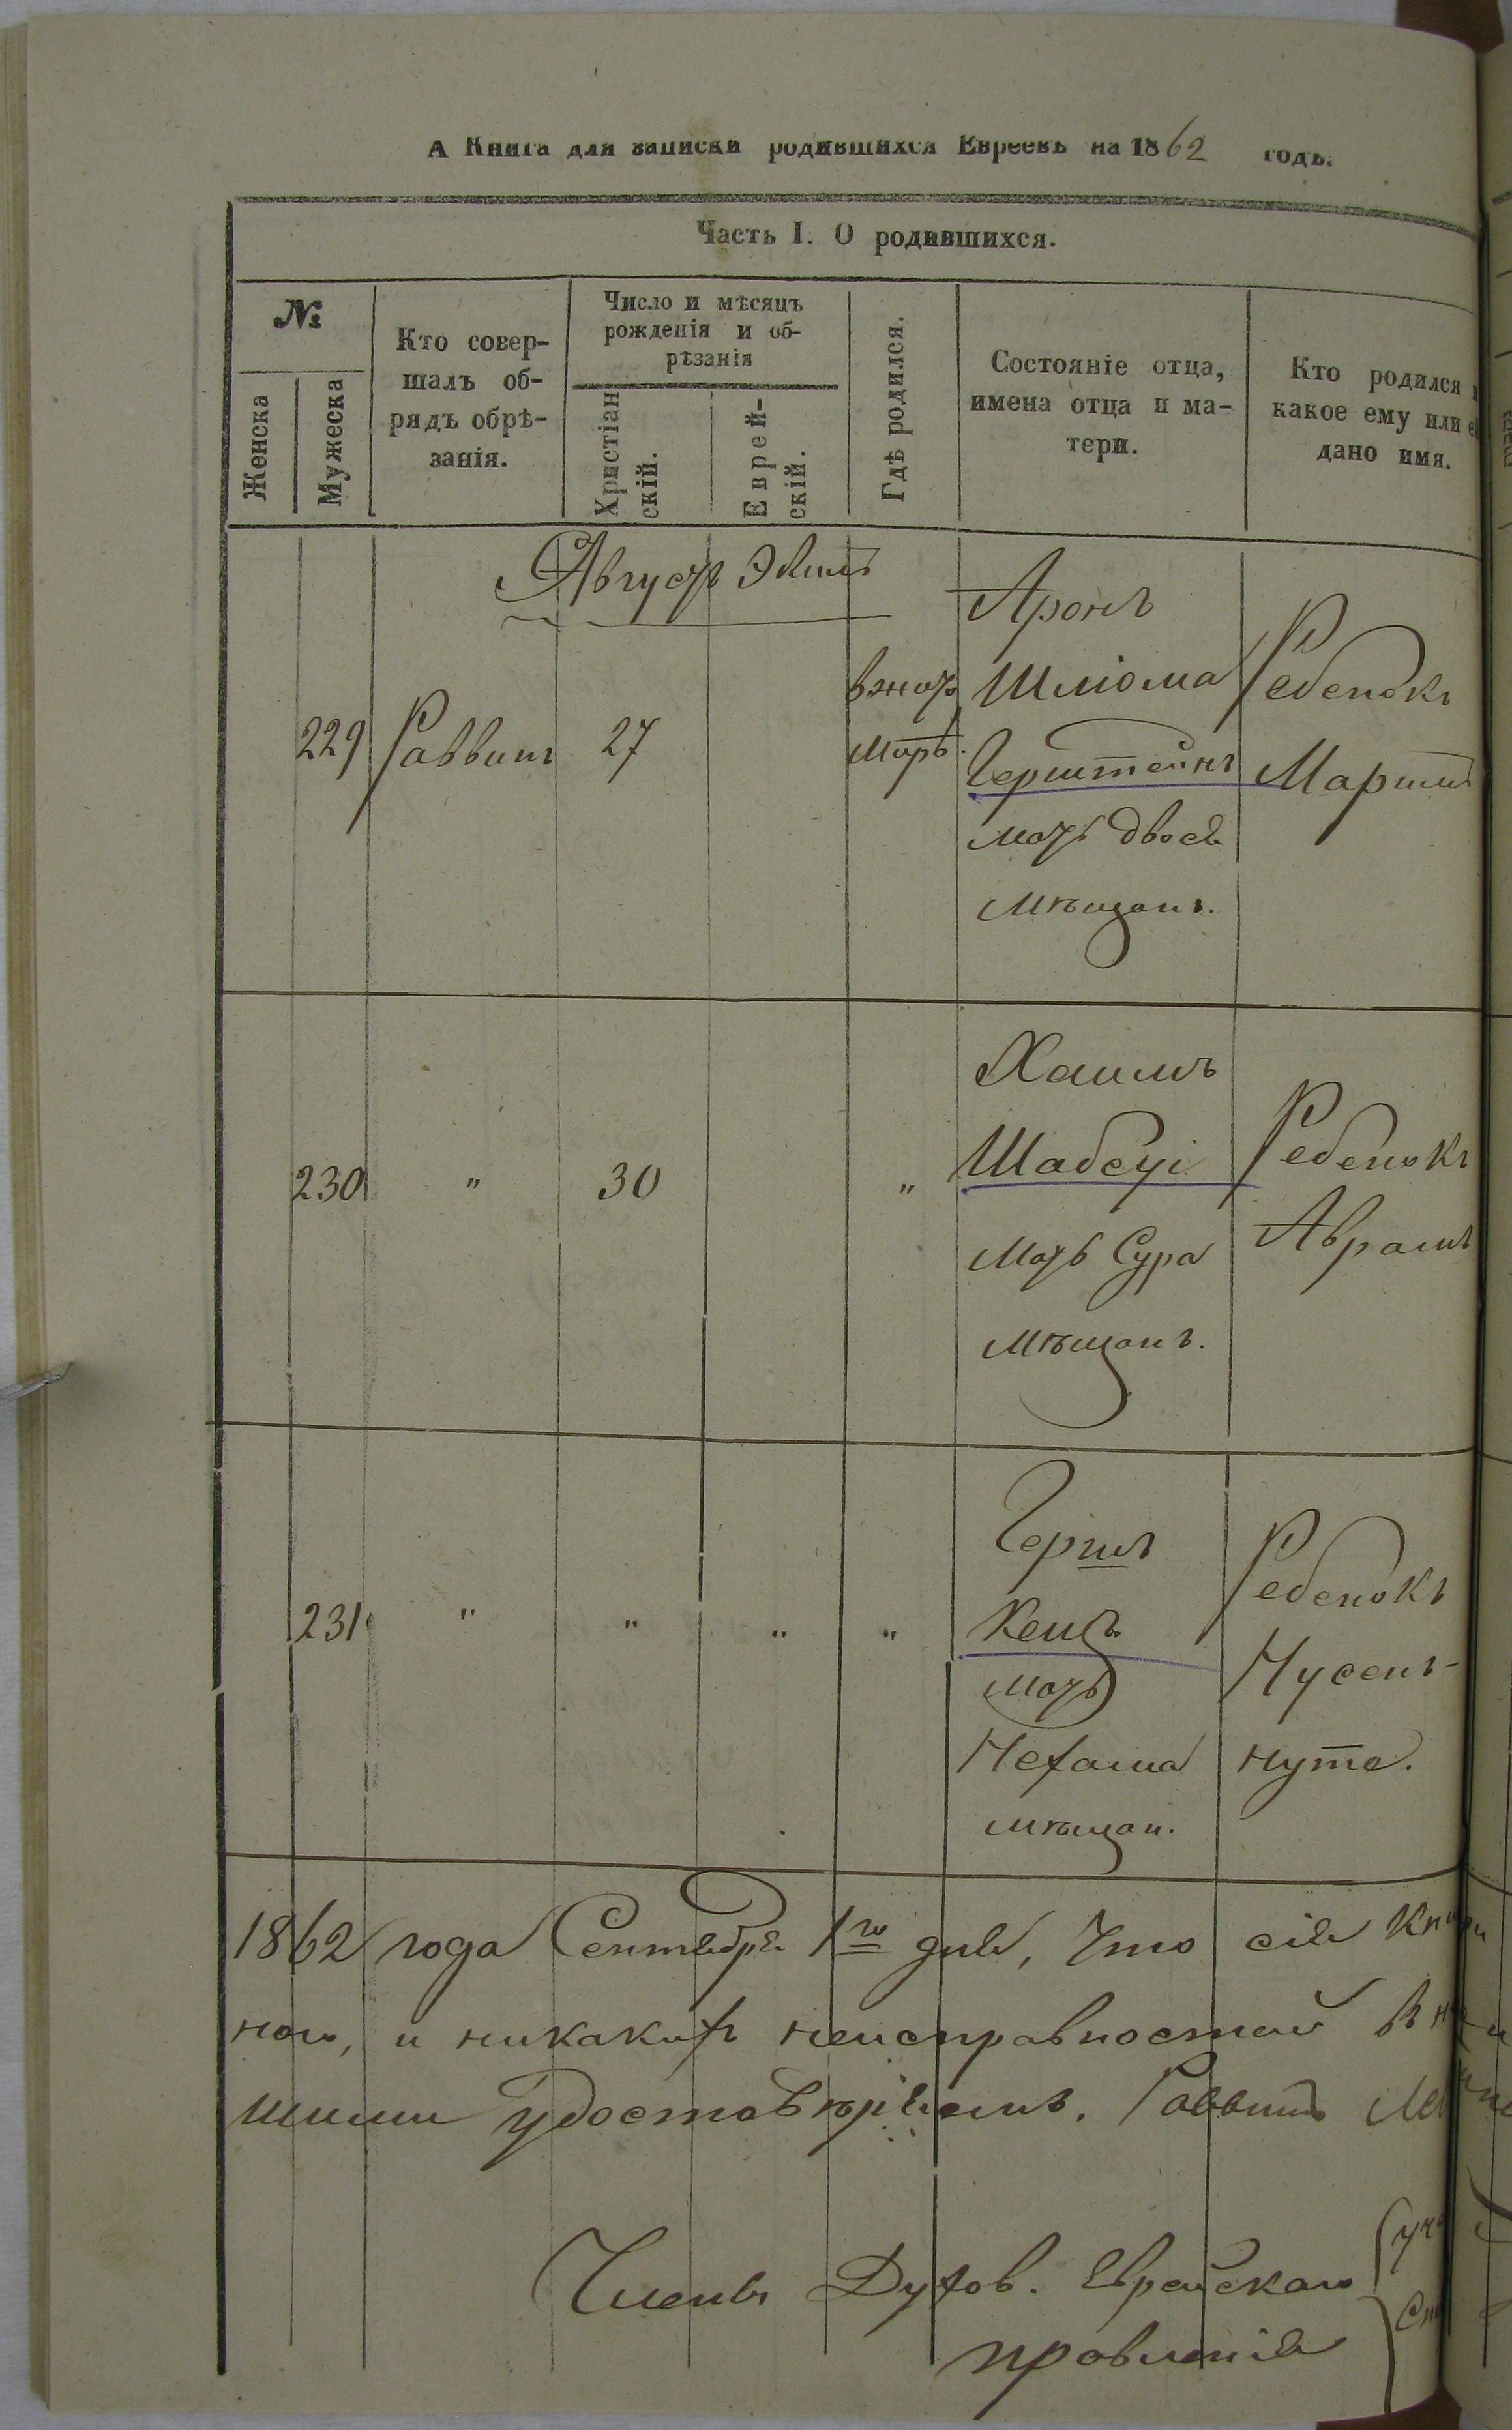 А Книга для записки родившихся Евреевъ на 1862 годъ.
Часть I. О родившихся.
№
Женска
Мужеска
Кто совер-
шалъ об-
рядъ обрѣ-
занія.
Число и мѣсяцъ
рожденія и об-
рѣзанія
Христіан
скій.
Еврей-
скій.
Гдѣ родился.
Состояніе отца,
имена отца и ма-
тери.
Кто родился
какое ему или
дано имя.
Августъ
229
Раввинъ
27
Аронъ
Шліома
Герштейнъ
мать Двося
мѣщанъ.
Ребенокъ
230
"
30
"
Хаимъ
Шабсуі
мать Сура
мѣщанъ.
Ребенокъ
Аврамъ
231
"
"
"
"
Кецъ
мать
Нехама
мѣщан.
Ребенокъ
Нусенъ-
нута.
1862 года Сентября 1го дня, что сія
ного, и никакихъ неисправностей въ
шими удостовѣряемъ. Раввинъ
Члены Духов. Еврейскаго
правленія